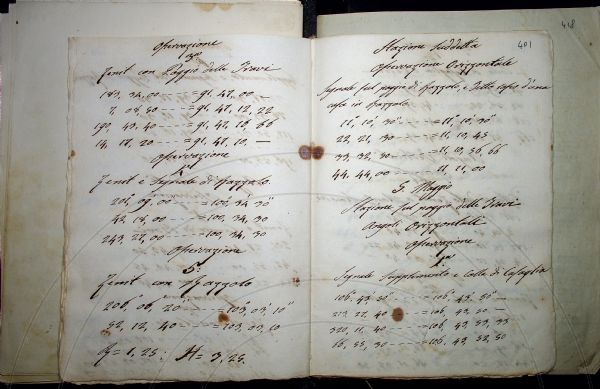 Osservazione
3ª
Zenit con Poggio delle Travi
183, 34, 00 - - - - = 91, 47, 00 —
7, 08, 50 - - - = 91, 47, 12, 22
190, 43, 40 - - - = 91, 47, 10, 66
14, 18, 20 - - - = 91, 47, 10, —
Osservazione
Zenit e Segnale di Gazzolo.
201, 09, 00 - - - - = 100, 34, 30
42, 18, 00 - - - - = 100, 34, 30
243, 27, 00 - - - - = 100, 34, 30
Osservazione
5ª
Zenit con Gazzolo
206, 06, 20 - - - - = 103, 03, 10
52, 12, 40 - - - = 103, 03, 10
= 1, 25; H = 3, 25.
418
401
Stazione suddetta
Osservazione Orizzontale
Segnale sul poggio di Gazzolo, e
casa in Gazzolo
11°, 10', 30" - - - - = 11°, 10', 30"
22, 21, 30 - - - - = 11, 10, 45
33, 32, 30 - - - - = 11, 10, 56, 66
44, 44, 00 - - - - = 11, 11, 00
5. Maggio
Stazione sul poggio delle Travi
Angoli Orizzontali
Osservazione
1ª
Segnale Supplimento e Colle di Casaglia
106, 43, 50 - - - - = 106, 43, 50 —
213, 27, 40 - - - = 106, 43, 50 —
320, 11, 40 - - - - = 106, 43, 53, 33
66, 55, 30 - - - - = 106, 43, 52, 50